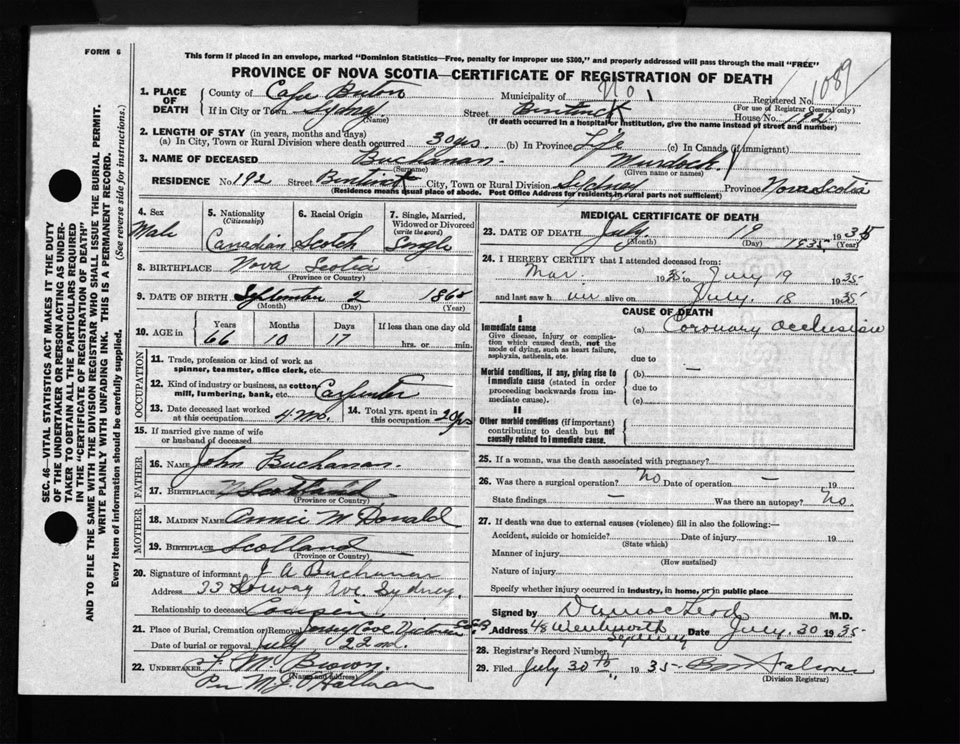 FORM 6
This form if placed in an envelope, marked "Dominion Statistics—Free, penalty for improper use $300," and properly addressed will pass through the mail "FREE"
PROVINCE OF NOVA SCOTIA—CERTIFICATE OF REGISTRATION OF DEATH
1089
1. PLACE OF DEATH County of Cape Breton Municipality of No 1 Registered No.
(For use of Registrar General only)
If in City or Town Sydney (Name) Street Bentinck House No. 192
(If death occurred in a hospital or institution, give the name instead of street and number)
2. LENGTH OF STAY (in years, months and days)
(a) In City, Town or Rural Division where death occurred 30 yrs. (b) In Province Life (c) In Canada (if immigrant)
3. NAME OF DECEASED Buchanan. (Surname) Murdoch (Given name or names)
RESIDENCE No. 192 Street Bentinck City, Town or Rural Division Sydney Province Nova Scotia
(Residence means usual place of abode. Post Office Address for residents in rural parts not sufficient)
SEC. 46—VITAL STATISTICS ACT MAKES IT THE DUTY
OF THE UNDERTAKER OR PERSON ACTING AS UNDER-
TAKER TO OBTAIN ALL THE PARTICULARS REQUIRED
IN THE "CERTIFICATE OF REGISTRATION OF DEATH"
AND TO FILE THE SAME WITH THE DIVISION REGISTRAR WHO SHALL ISSUE THE BURIAL PERMIT.
WRITE PLAINLY WITH UNFADING INK. THIS IS A PERMANENT RECORD.
Every item of information should be carefully supplied. (See reverse side for instructions.)
4. Sex Male
5. Nationality (Citizenship) Canadian
6. Racial Origin Scotch
7. Single, Married, Widowed or Divorced (write the word) Single
8. BIRTHPLACE Nova Scotia
(Province or Country)
9. DATE OF BIRTH September 2 1868
(Month) (Day) (Year)
10. AGE in Years 66 Months 10 Days 17 If less than one day old hrs. or min.
OCCUPATION
11. Trade, profession or kind of work as
spinner, teamster, office clerk, etc.
12. Kind of industry or business, as cotton
mill, lumbering, bank, etc. Carpenter
13. Date deceased last worked at this occupation 4 Mo. 14. Total yrs. spent in this occupation 20 yrs
15. If married give name of wife
or husband of deceased
FATHER
16. NAME John Buchanan.
17. BIRTHPLACE Scotland
(Province or Country)
MOTHER
18. MAIDEN NAME Annie McDonald
19. BIRTHPLACE Scotland
(Province or Country)
20. Signature of informant J A Buchanan
Address 33 Ave. Sydney.
Relationship to deceased Cousin
21. Place of Burial, Cremation or Removal Cove Victoria Co CB
Date of burial or removal July 22nd.
22. UNDERTAKER F. M. Brown.
(Name and address)
Per M J O'Hallman
MEDICAL CERTIFICATE OF DEATH
23. DATE OF DEATH July 19 1935
(Month) (Day) (Year)
24. I HEREBY CERTIFY that I attended deceased from:
Mar. 1935 to July 19 1935
and last saw him alive on July. 18 1935
CAUSE OF DEATH
I
Immediate cause (a) Coronary occlusion
Give disease, injury or complica-
tion which caused death, not the
mode of dying, such as heart failure,
asphyxia, asthenia, etc.
due to
Morbid conditions, if any, giving rise to
immediate cause (stated in order
proceeding backwards from im-
mediate cause).
(b) —
due to
(c)
II
Other morbid conditions (if important)
contributing to death but not
causally related to immediate cause.
25. If a woman, was the death associated with pregnancy?
26. Was there a surgical operation? No Date of operation — 19
State findings — Was there an autopsy? No.
27. If death was due to external causes (violence) fill in also the following:—
Accident, suicide or homicide? Date of injury 19
(State which)
Manner of injury
(How sustained)
Nature of injury
Specify whether injury occurred in industry, in home, or in public place
Signed by D MacLeod M.D.
Address 48 Wentworth Sydney Date July. 30 1935
28. Registrar's Record Number
29. Filed July 30th 1935
(Division Registrar)